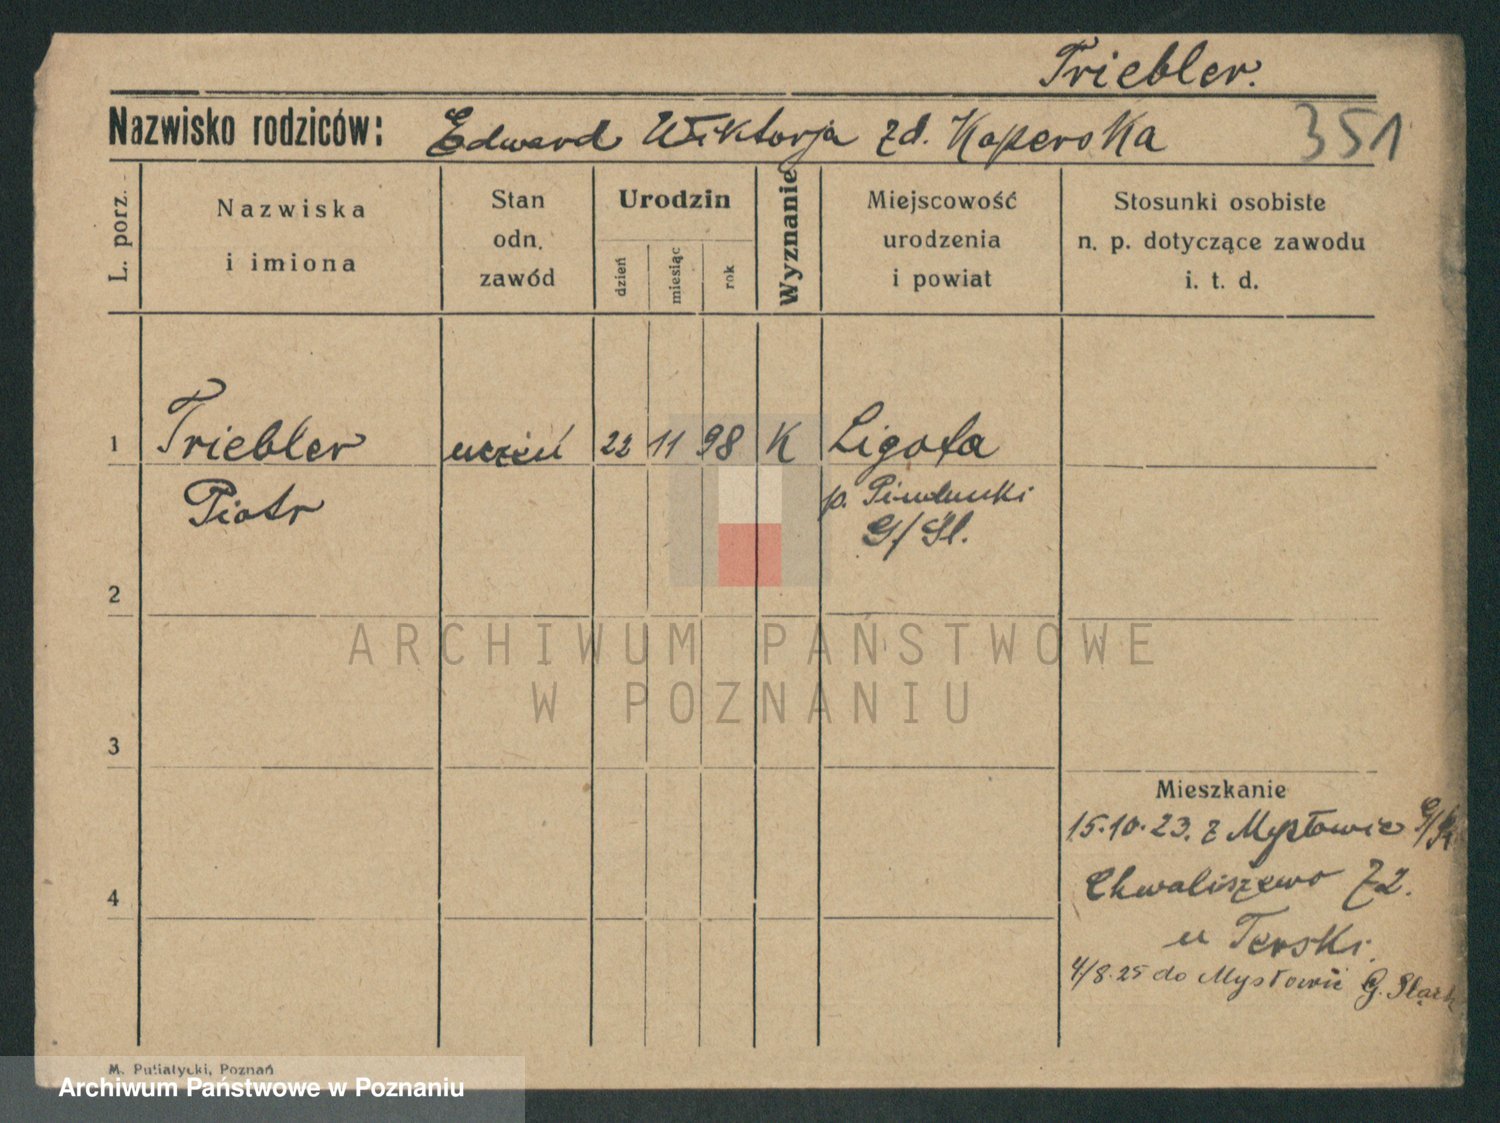 Triebler.
Nazwisko rodziców: Edward Wiktorja zd. Kaperska 351
L. porz.
Nazwiska
i imiona
Stan
odn.
zawód
Urodzin
dzień
miesiąc
rok
Wyznanie
Miejscowość
urodzenia
i powiat
Stosunki osobiste
n. p. dotyczące zawodu
i. t. d.
1 Triebler uczeń 22 11 98 K Ligota
Piotr
p.
G/Śl.
2
ARCHIWUM PAŃSTWOWE
W POZNANIU
3
Mieszkanie
15.10.23. z Mysłowic G/Śl
4
Chwaliszewo 72.
u Terski.
4/8.25 do Mysłowic G. Śląsk
M. Putiatycki, Poznań
Archiwum Państwowe w Poznaniu